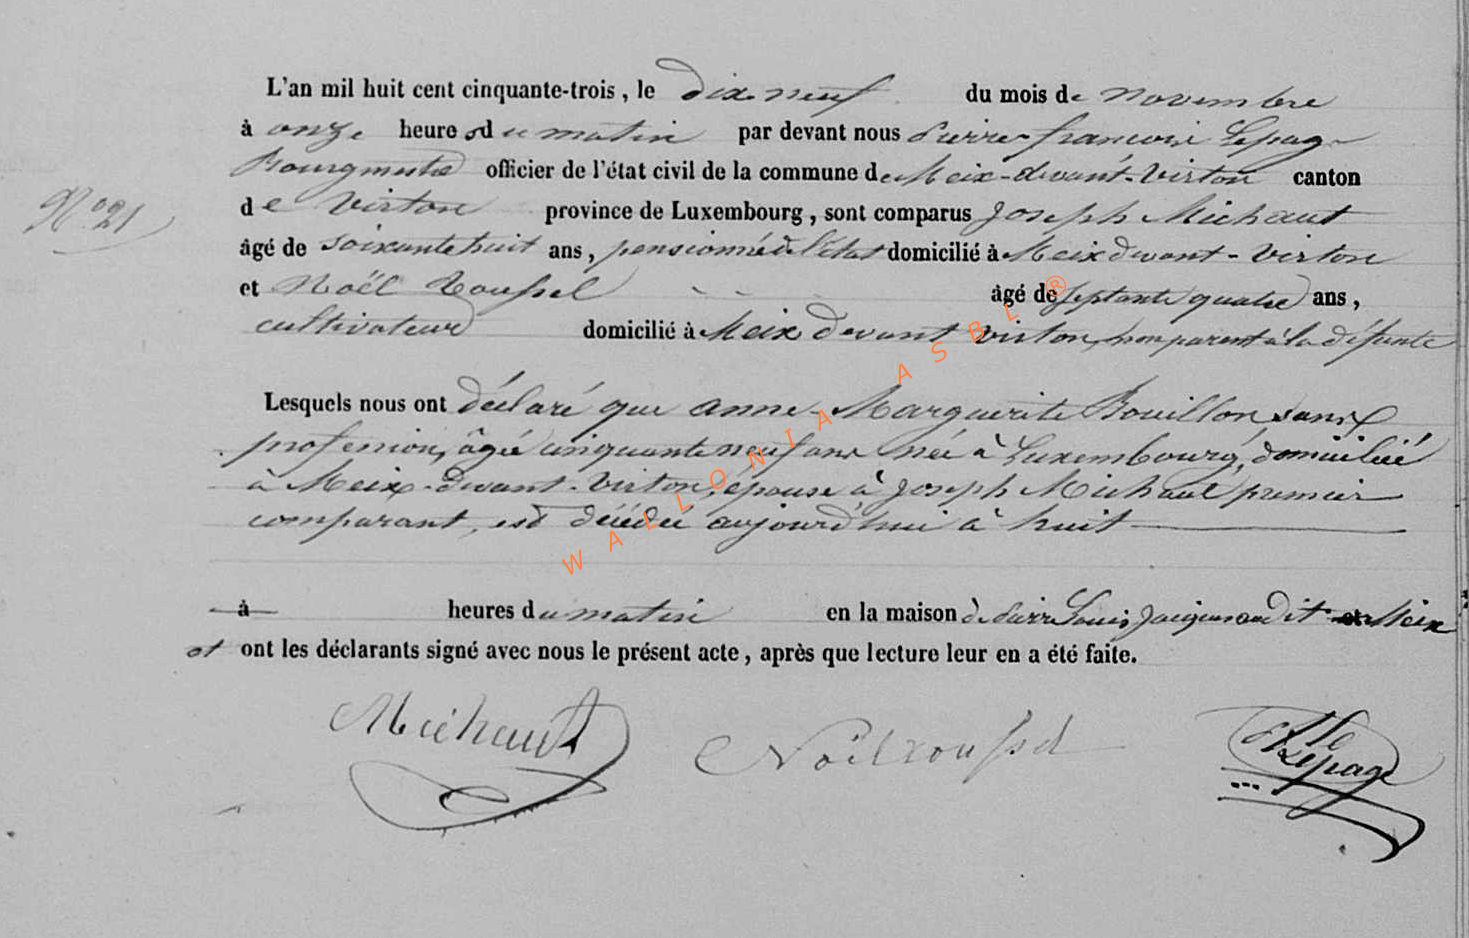 L'an mil huit cent cinquante-trois, le dix neuf du mois de novembre
à onze heures du matin par devant nous Pierre françois Lepage
Bourgmestre officier de l'état civil de la commune de Meix-devant-Virton canton
de Virton province de Luxembourg, sont comparus Joseph Michaut
âgé de soixante huit ans, pensionné de l'état domicilié à Meix devant-Virton
et Noël Roussel âgé de septante quatre ans,
cultivateur domicilié à Meix devant Virton, non parent à la défunte
N° 21
Lesquels nous ont déclaré que anne-Marguerite Bouillon, sans
profession, âgée cinquante neuf ans née à Luxembourg, domiciliée
à Meix-devant-Virton, épouse à Joseph Michaut premier
comparant, est décédée aujourd'hui à huit
à heures du matin en la maison de Pierre Louis Jacquemin dit Meix
et ont les déclarants signé avec nous le présent acte, après que lecture leur en a été faite.
Michaut Noël roussel Lepage
WALLONIA ASBL ®